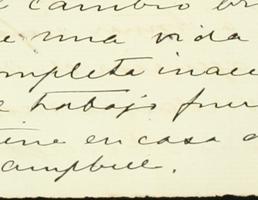 cambio br
e una vida
ompleta inacc
e trabajo fuer
tine en casa d
ampbell.